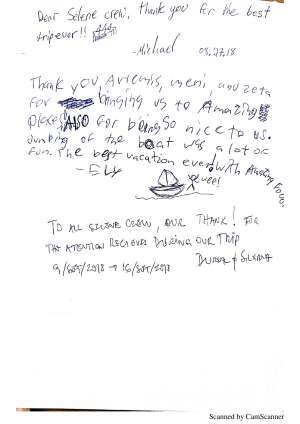 Dear Selene crew, thank you for the best
trip ever!!
-Michael 08.27.18
Thank you Artemis, , and zeta
for bringing us to Amazing
places Also for being so nice to us.
Jumping of the boat was a lot of
fun. The best vacation ever with Amazing Food!
- Ely
TO ALL SELENE CREW, OUR THANK! FOR
THE ATTENTION RECIEVED DURING OUR TRIP
9/SET/2018 → 16/SET/2018
& SILVANA
Scanned by CamScanner